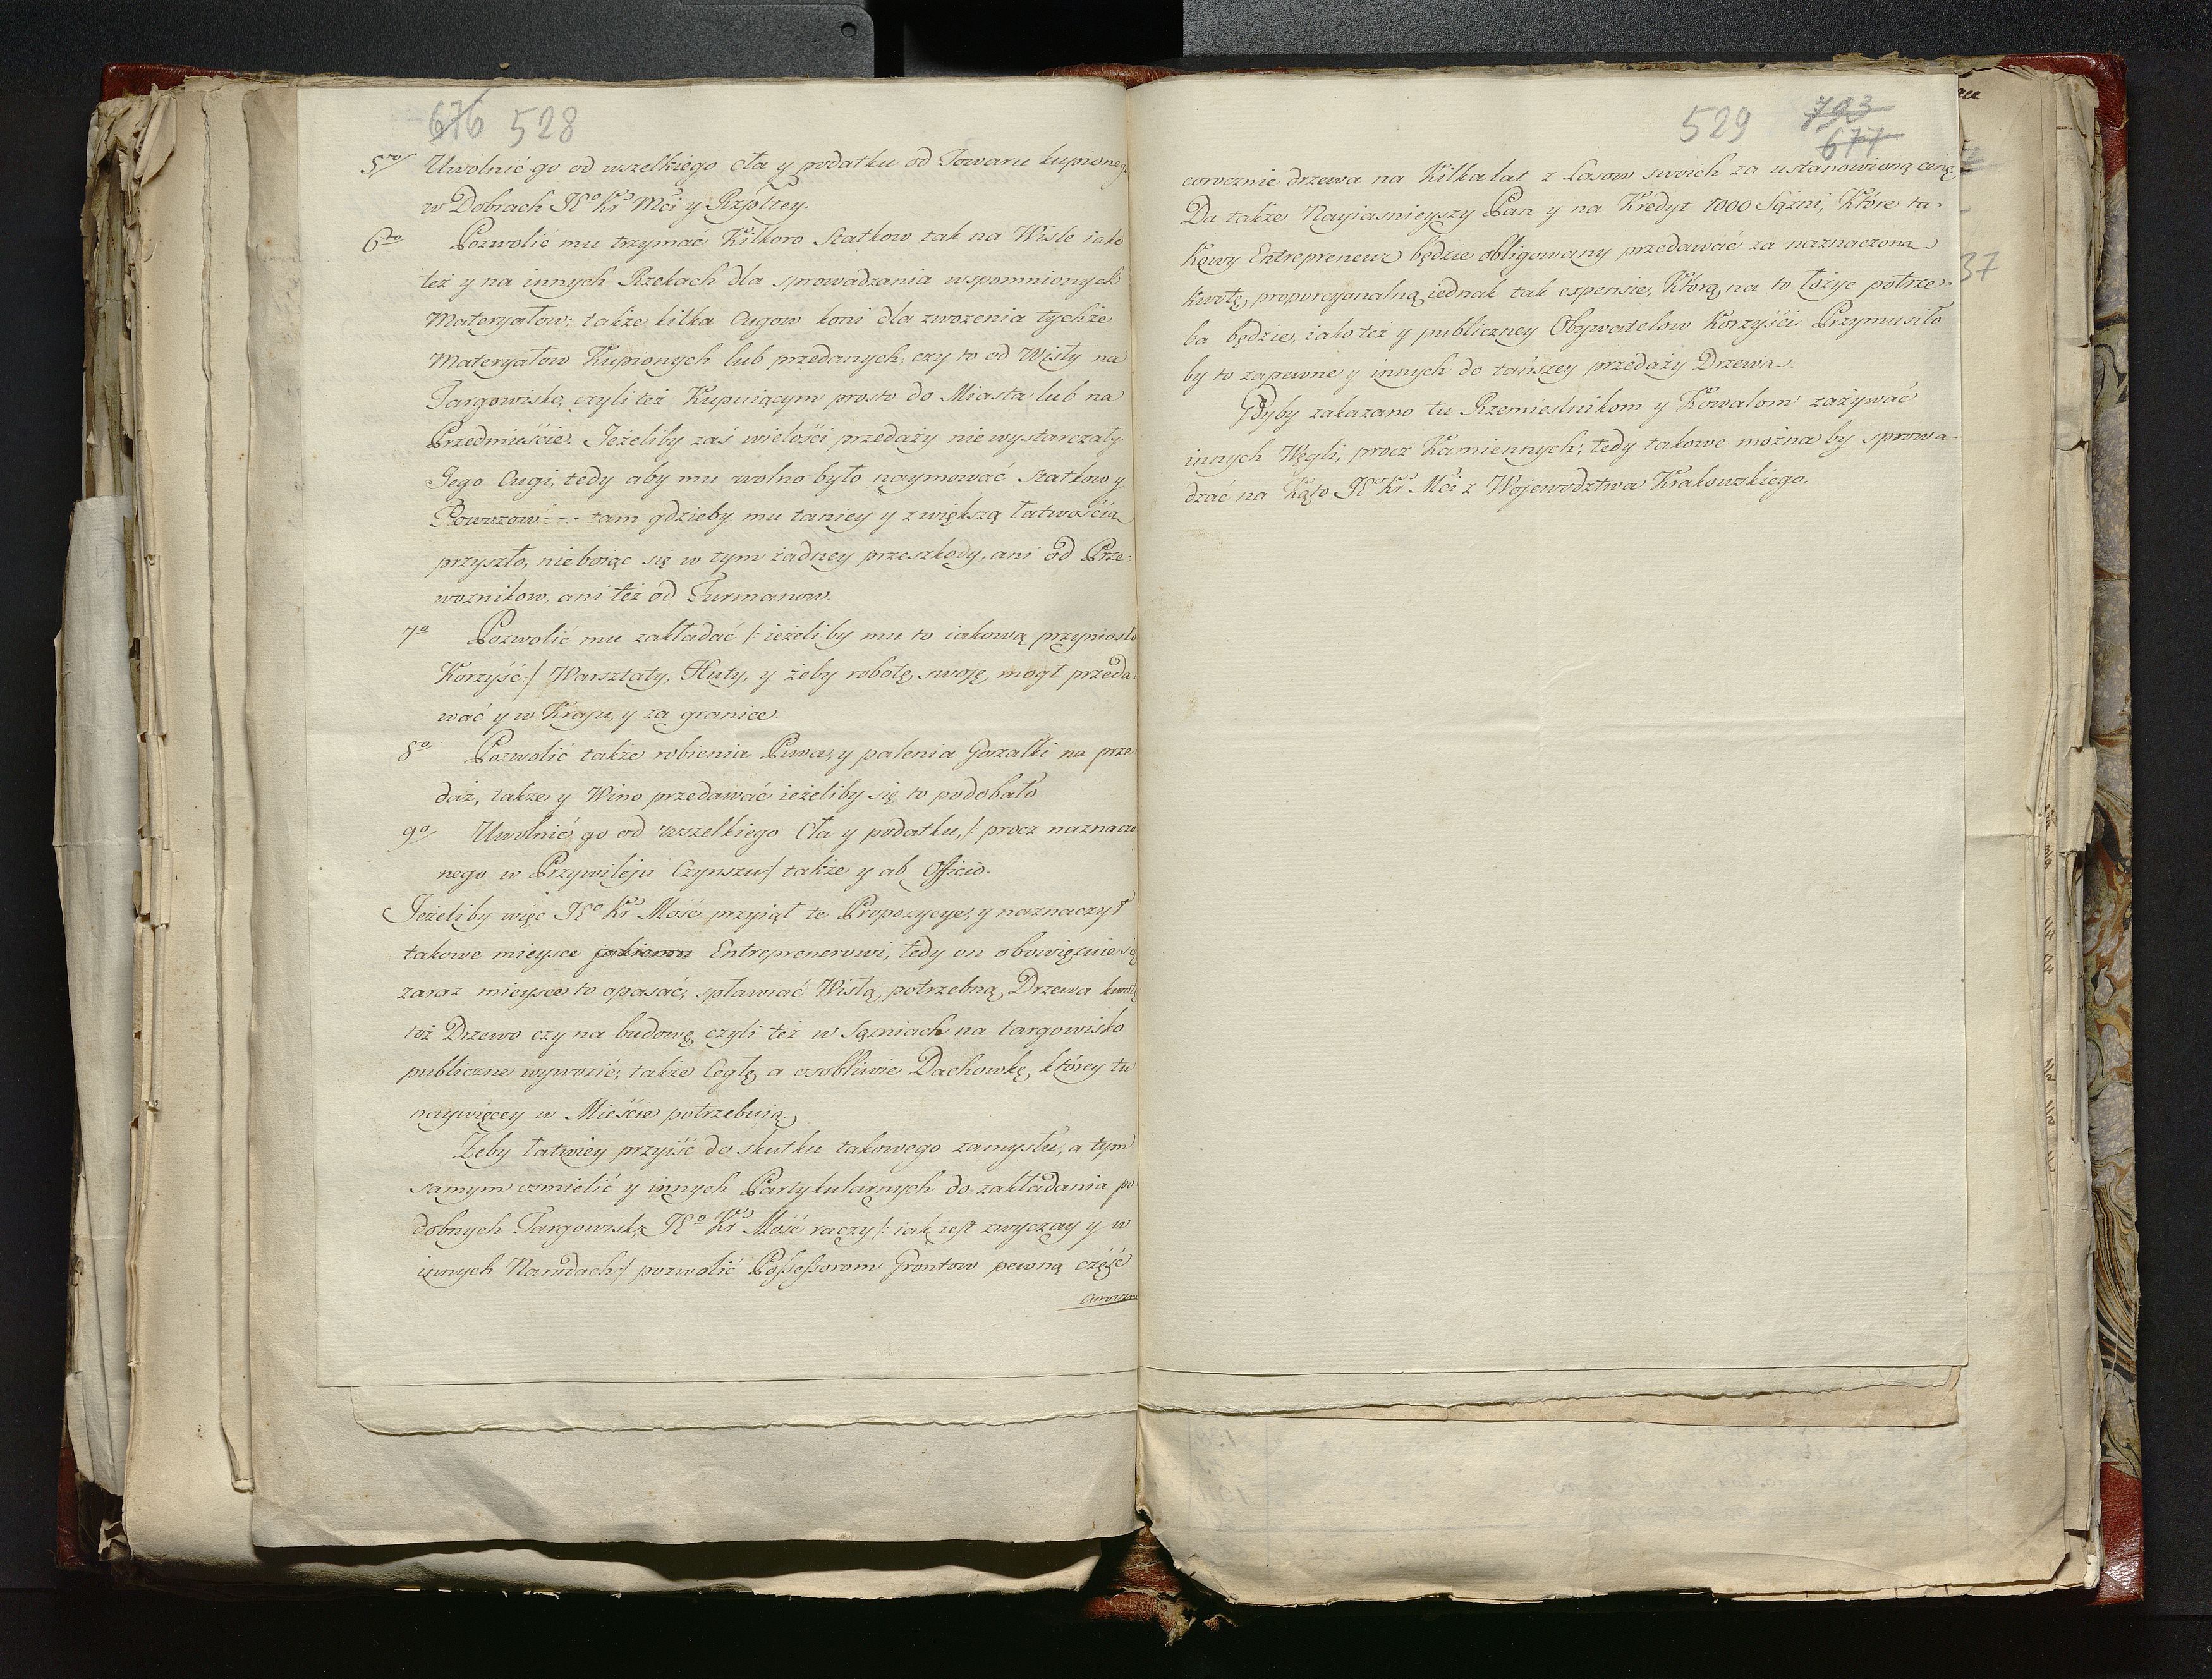 676 528
5to/ Uwolnić go od wszelkiego Cła y podatku od Towaru kupionego
w Dobrach JKo Kr Mci y Rzpltey.
6to Pozwolić mu trzymać Kilkoro Statkow tak na Wisle iako
też y na innych Rzekach dla sprowadzania wspomnionych
Materyałow; także kilka Cugow koni dla zwozenia tychże
Materyałow Kupionych lub przedanych, czy to od Wisły na
Targowisko, czyli też Kupuiącym prosto do Miasta lub na
Przedmieście. Jeżeliby zaś wielości przedaży nie wystarczały
Jego Cugi, tedy aby mu wolno było naymować Statkow y
Powozow --- tam gdzieby mu taniey y z większą łatwością
przyszło, nie boiąc się w tym żadney przeszkody, ani od Prze-
woznikow, ani też od Furmanow.
7o Pozwolić mu zakładać /: ieżeliby mu to iakową przyniosło
Korzyść :/ Warsztaty, Huty, y żeby robotę swoię mogł przeda-
wać y w Kraju, y za granice.
8o Pozwolić także robienia Piwa, y palenia Gorzałki na prze
daż, także y Wino przedawać ieżeliby się to podobało.
9o/ Uwolnić go od wszelkiego Cła y podatku, /: procz naznaczo
nego w Przywileju Czynszu :/ także y ab Officio.
Jeżeliby więc JKo Kr Mość przyiął te Propozycye, y naznaczył
takowe mieysce jakiemu Entreprenerowi, tedy on obowięzuie się
zaraz mieysce to opasać, spławiać Wisłą potrzebną Drzewa kwotę
toż Drzewo czy na budowę czyli też w Sązniach na targowisko
publiczne wywozić, także Cegłę a osobliwie Dachowkę, ktorey tu
naywięcey w Mieście potrzebuią.
Żeby łatwiey przyiść do skutku takowego zamysłu, a tym
samym osmielić y innych Partykularnych do zakładania po
dobnych Targowisk, JKo Kr Mość raczy /: iak iest zwyczay y w
innych Narodach :/ pozwolić Possessorom Grontow pewną część
corocznie
529 793
677
corocznie drzewa na Kilka lat z Lasow swoich za ustanowioną cenę
Da także Nayiasnieyszy Pan y na Kredyt 1000 Sążni, Które ta-
Kowy Entrepreneur będzie obligowany przedawać za naznaczoną
kwotę, proporcyonalną iednak tak expensie, Którą na to łożyc potrze-
ba będzie, iako też y publiczney Obywatelow Korzyści. Przymusiło
by to zapewne y innych do tańszey przedaży Drzewa.
Gdyby zakazano tu Rzemieslnikom y Kowalom zażywać
innych Węgli, procz Kamiennych, tedy takowe można by sprowa-
dzać na Kąto JKo Kr Mci z Wojewodztwa Krakowskiego.
37